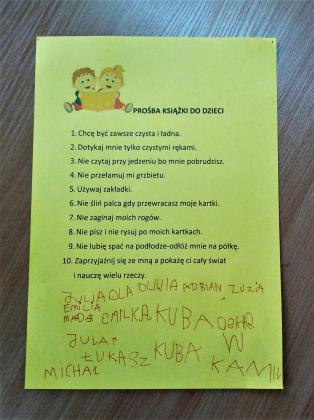 PROŚBA KSIĄŻKI DO DZIECI
1. Chcę być zawsze czysta i ładna.
2. Dotykaj mnie tylko czystymi rękami.
3. Nie czytaj przy jedzeniu bo mnie pobrudzisz.
4. Nie przełamuj mi grzbietu.
5. Używaj zakładki.
6. Nie śliń palca gdy przewracasz moje kartki.
7. Nie zaginaj moich rogów.
8. Nie pisz i nie rysuj po moich kartkach.
9. Nie lubię spać na podłodze-odłóż mnie na półkę.
10. Zaprzyjźnij się ze mną a pokażę ci cały świat
i nauczę wielu rzeczy.
JULJA OLA OLIWIA ADRIAN ZUZIA
EMILIA
EMILKA KUBA
ŁUKASZ KUBA W
MICHAŁ KAMIL